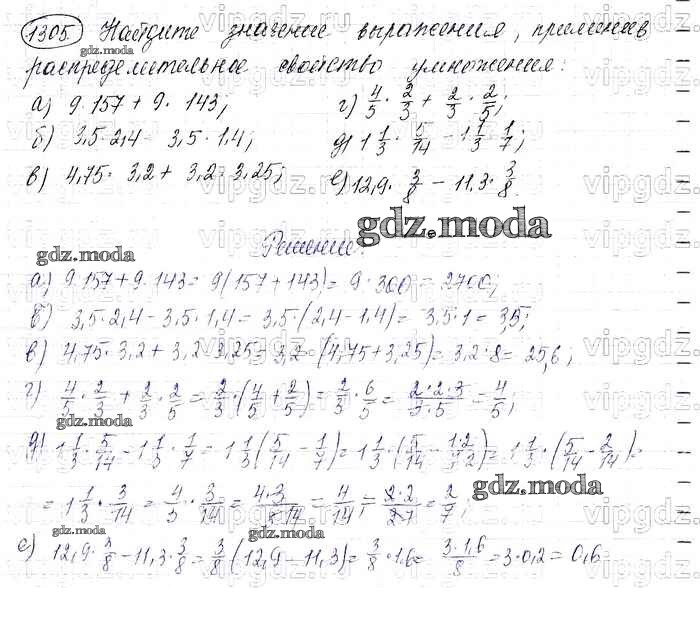 1305 Найдите значение выражения, применяв
распределительное свойство умножения:
а) 9·157 + 9·143;
г) 4/5 · 2/3 + 2/3 · 2/5;
б) 3,5·2,4 - 3,5·1,4;
д) 1 1/3 · 5/14 - 1 1/3 · 1/7;
в) 4,75·3,2 + 3,2·3,25;
е) 12,9 · 3/8 - 11,3 · 3/8
gdz.moda
Решение:
а) 9·157+9·143 = 9(157+143) = 9·300 = 2700;
б) 3,5·2,4 - 3,5·1,4 = 3,5·(2,4-1,4) = 3,5·1 = 3,5;
в) 4,75·3,2 + 3,2·3,25 = 3,2·(4,75+3,25) = 3,2·8 = 25,6;
г) 4/5 · 2/3 + 2/3 · 2/5 = 2/3 · (4/5 + 2/5) = 2/3 · 6/5 = 2·2·3/3·5 = 4/5;
д) 1 1/3 · 5/14 - 1 1/3 · 1/7 = 1 1/3 (5/14 - 1/7) = 1 1/3 · (5/14 - 1·2/7·2) = 1 1/3 · (5/14 - 2/14) =
= 1 1/3 · 3/14 = 4/3 · 3/14 = 4·3/3·14 = 4/14 = 2·2/2·7 = 2/7;
е) 12,9 · 3/8 - 11,3 · 3/8 = 3/8 (12,9 - 11,3) = 3/8 · 1,6 = 3·1,6/8 = 3·0,2 = 0,6